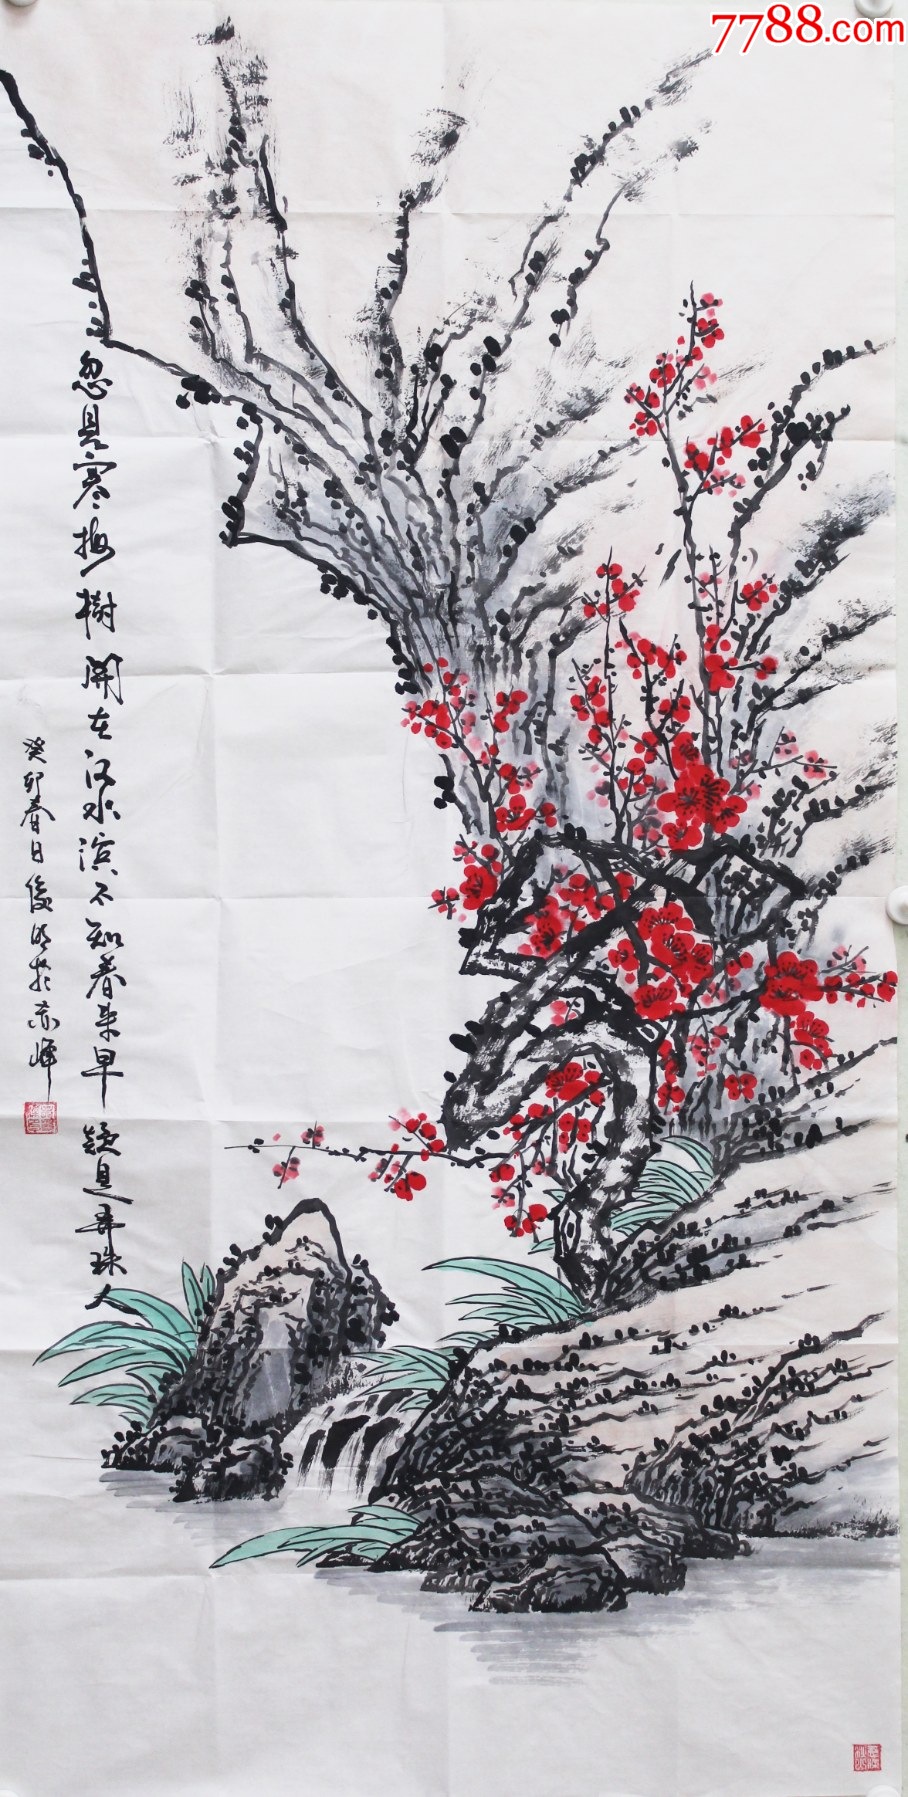 7788.com
忽見寒梅樹開在汉水滨不知春来早疑是弄珠人
癸卯春日俊於赤峰